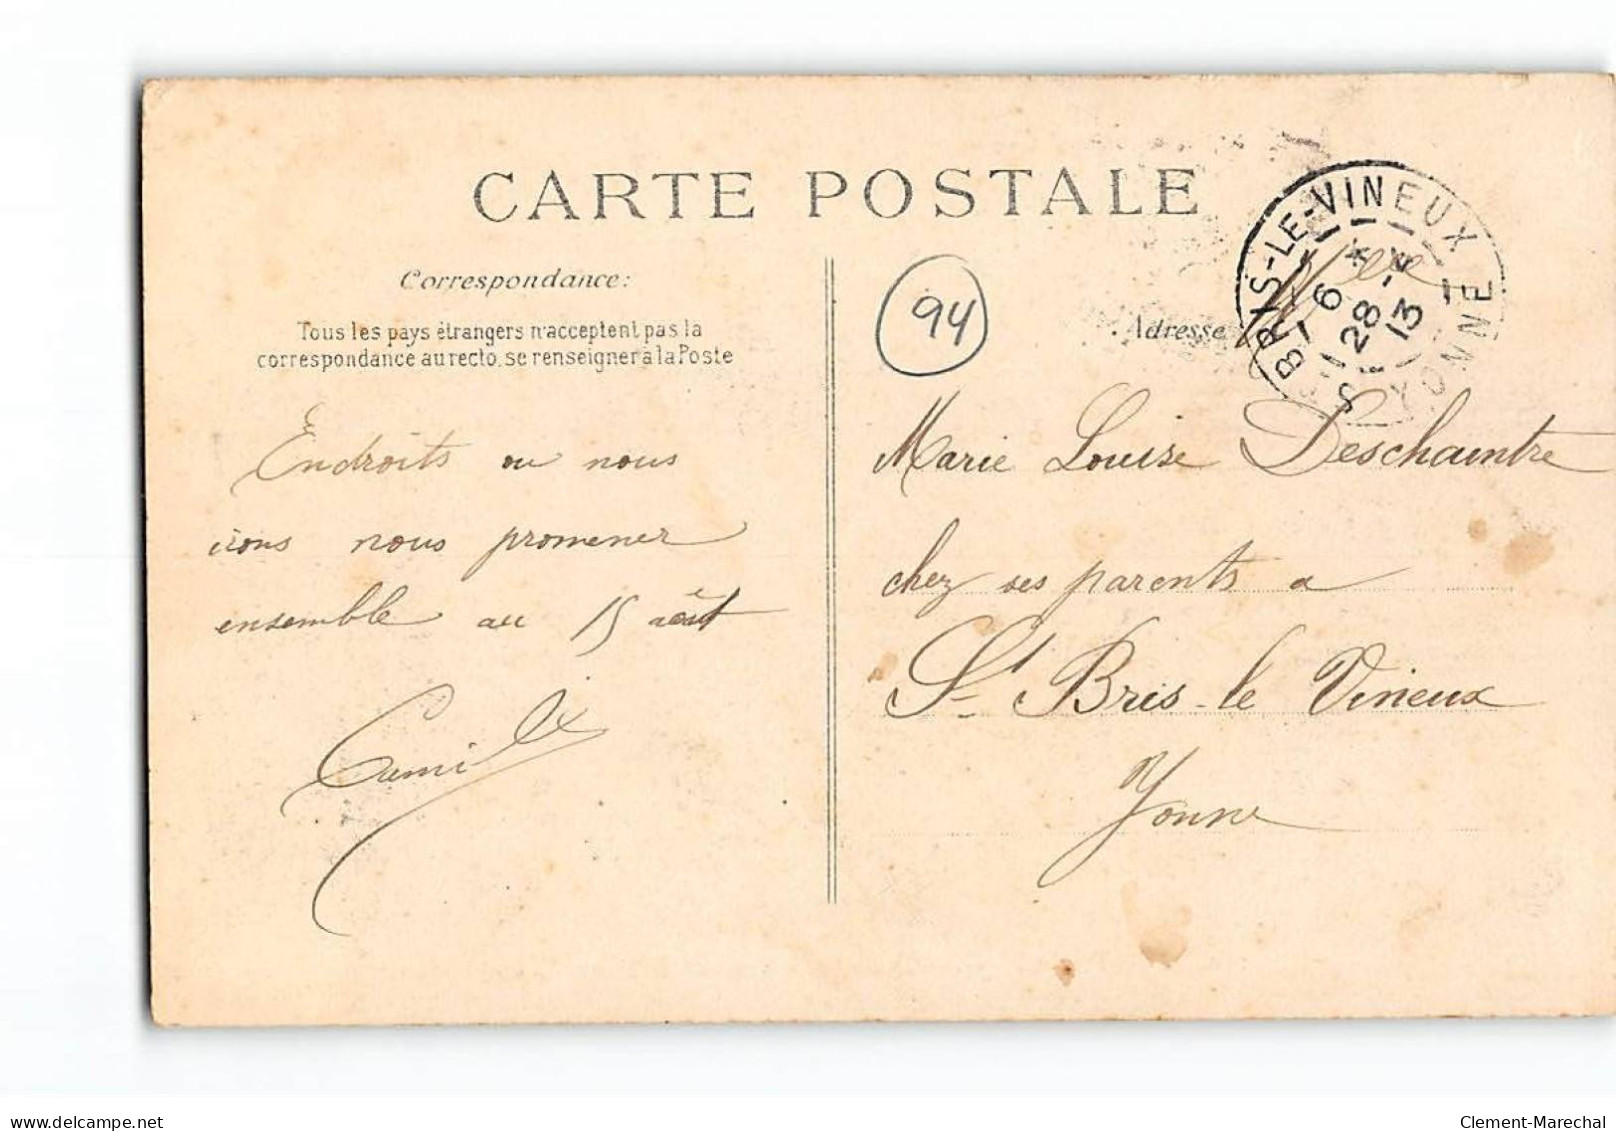 CARTE POSTALE
Correspondance:
Tous les pays étrangers n'acceptent pas la
correspondance au recto. se renseigner à la Poste
Endroits ou nous
irons nous promener
ensemble au 15 août
Camille
94
Adresse
ST BRIS-LE-VINEUX
6 *
28-4
13
YONNE
Melle
Marie Louise Deschaintre
chez ses parents a
St Bris-le Vineux
Yonne
Clement-Marechal